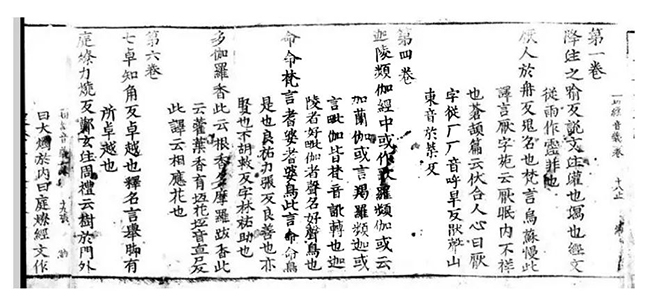 一切經音義卷
第一卷
降注之喻反說文注灌也瀉也經文
從雨作霔非也
厭人於冉反鬼名也梵言烏蘇慢此
譯言厭字苑云厭眠內不祥
也蒼頡篇云伏合人心曰厭
字從厂厂音呼旱反猒聲山
東音於葉反
第四卷
迦陵頻伽經中或作歌羅頻伽或云
加蘭伽或言羯羅頻迦或
言毗伽皆梵音訛轉也迦
陵者好毗伽者聲名好聲鳥也
命命梵言耆婆耆婆鳥此言命命鳥
是也良祐力張反良善也亦
賢也下胡救反字林祐助也
多伽羅香此云根香多摩羅跋香此
云藿葉香育坘花坘音直尼反
此譯云相應花也
第六卷
七卓知角反卓越也釋名言舉脚有
所卓越也
庭燎力燒反鄭玄注周禮云樹於門外
曰大燭於內曰庭燎經文作